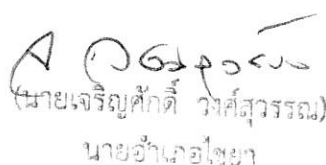 (นายเจริญศักดิ์ วงศ์สุวรรณ)
นายอำเภอไชยา